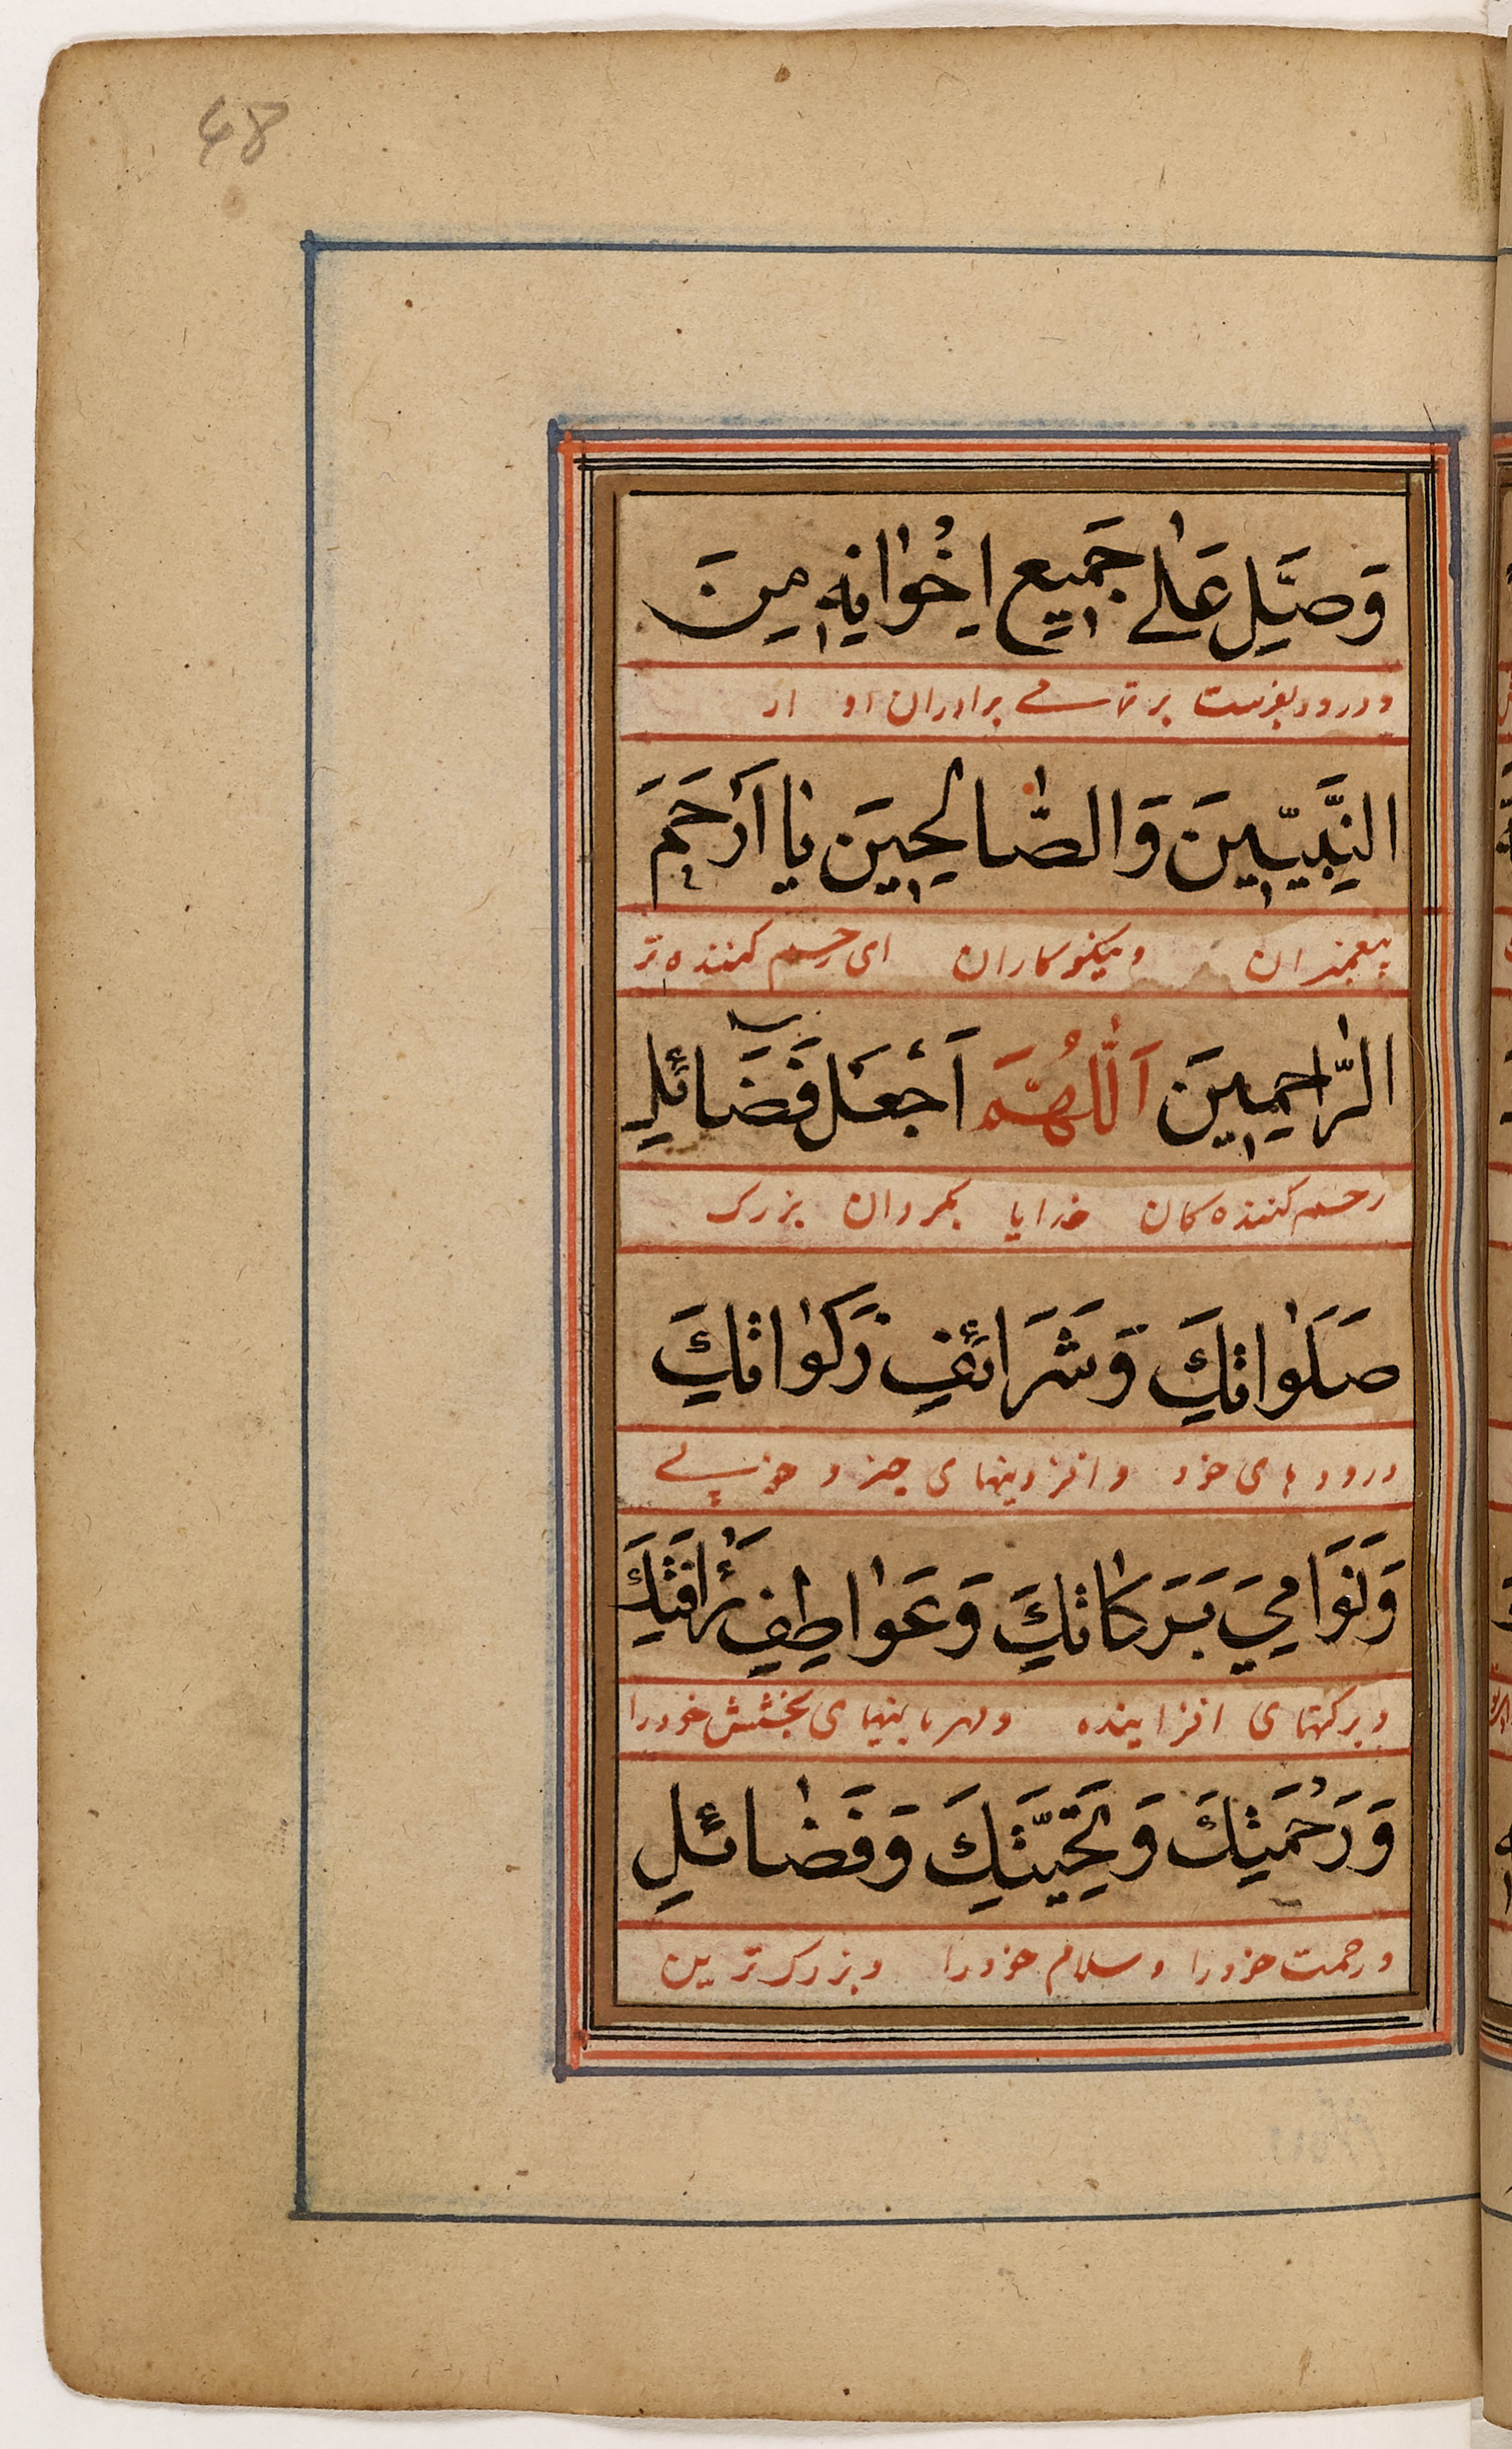 48
وَصَلِّ عَلٰى جَمِيعِ اِخْوٰانِهِ مِنَ
و درود بفرست بر تمامی برادران او از
النَّبِيّينَ وَالصّٰالِحِينَ يٰا اَرْحَمَ
پیغمبران و نیکوکاران ای رحم کننده تر
الرّٰاحِمِينَ اَللّٰهُمَّ اَجْعَلْ فَضَائِلَ
رحم کننده کان خدایا بگردان بزرک
صَلَوٰاتِكَ وَشَرَائِفَ زَكَوٰاتِكَ
درود های خود و افزدینهای چیز و خوبی
وَنَوَامِيَ بَرَكٰاتِكَ وَعَوٰاطِفَ رَأْفَتِكَ
و برکتهای افزاینده و مهربانیهای بخشش خودرا
وَرَحْمَتِكَ وَتَحِيَّتِكَ وَفَضٰائِلِ
و رحمت خودرا و سلام خودرا و بزرک ترین